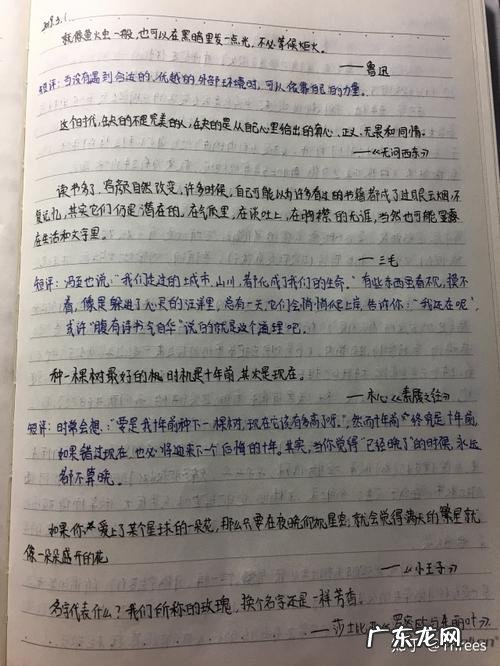 2019.3.1
就像萤火虫一般,也可以在黑暗里发一点光,不必等候炬火。
——鲁迅
短评:当没有遇到合适的、优越的外部环境时,可以依靠自己的力量。
这个时代,缺的不是完美的人,缺的是从自己心里给出的真心、正义、无畏和同情。
——《无问西东》
读书多了,容颜自然改变,许多时候,自己可能以为许多看过的书籍都成了过眼云烟,不
复记忆,其实它们仍是潜在的,在气质里,在谈吐上,在胸襟的无涯,当然也可能显露
在生活和文字里。
——三毛
短评:冯至也说:"我们走过的城市、山川,都化成了我们的生命。"有些东西看不见,摸不
着,像是躲进了心灵的汪洋里,总有一天,它们会悄悄爬上岸,告诉你:"我还在呢",
或许"腹有诗书气自华"说的就是这个道理吧。
种一棵树最好的时机是十年前,其次是现在。
——木心《素履之往》
短评:时常会想:"要是我十年前种下一棵树,现在它该有多高了呀。",然而十年前终究是十年前,
如果错过现在,也必将迎来下一个后悔的十年。其实,当你觉得"已经晚了"的时候,永远
都不算晚。
如果你爱上了某个星球的一朵花,那么只要在夜晚仰望星空,就会觉得满天的繁星就
像一朵朵盛开的花
——《小王子》
名字代表什么?我们所称的玫瑰,换个名字还是一样芳香。
——莎士比亚《罗密欧与朱丽叶》
知乎 @Threes
广东龙网